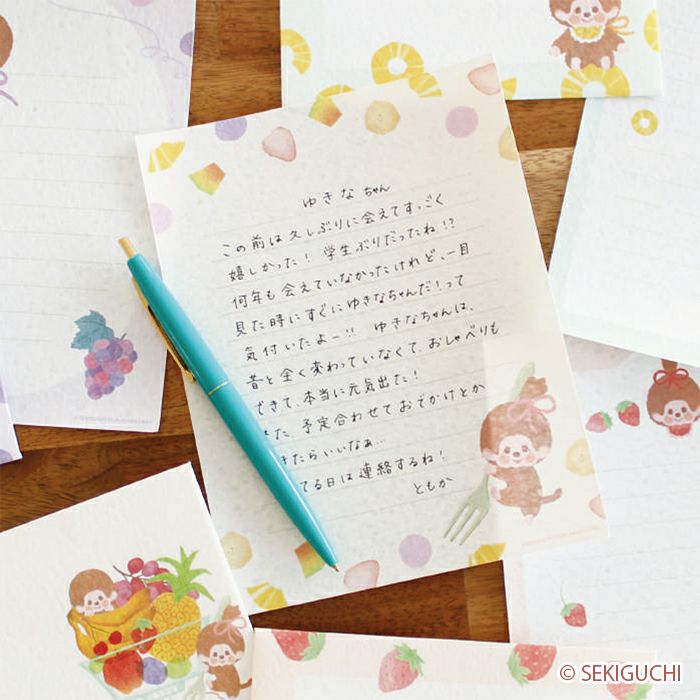 ゆきなちゃん
この前は久しぶりに会えてすっごく
嬉しかった! 学生ぶりだったね!?
何年も会えていなかったけれど、一目
見た時にすぐにゆきなちゃんだ!って
気付いたよー!! ゆきなちゃんは、
昔と全く変わっていなくて、おしゃべりも
できて、本当に元気出た!
た、予定合わせておでかけとか
きたらいいなぁ…
てる日は連絡するね!
ともか
© SEKIGUCHI